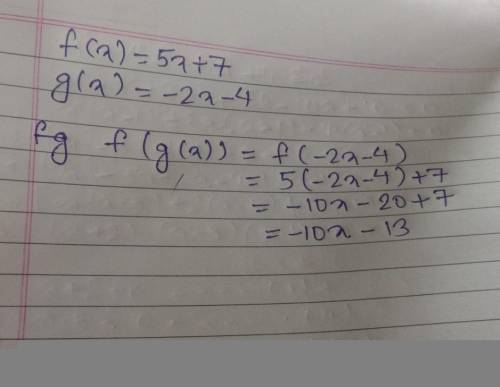 f(x) = 5x+7
g(x) = -2x-4
fg f(g(x)) = f(-2x-4)
= 5(-2x-4)+7
= -10x-20+7
= -10x-13